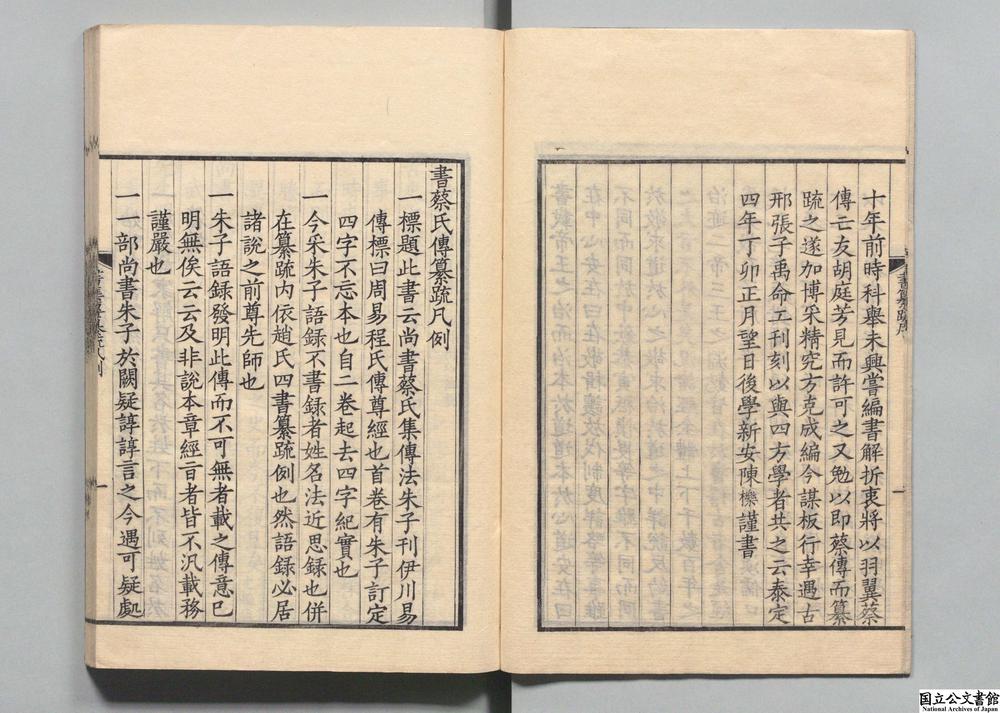 十年前時科舉未興嘗編書解折衷將以羽翼蔡
傳亡友胡庭芳見而許可之又勉以即蔡傳而纂
疏之遂加博采精究方克成編今謀板行幸遇古
邢張子禹命工刊刻以與四方學者共之云泰定
四年丁卯正月望日後學新安陳櫟謹書
一
書蔡氏傳纂疏凡例
一標題此書云尚書蔡氏集傳法朱子刊伊川易
傳標曰周易程氏傳尊經也首卷有朱子訂定
四字不忘本也自二卷起去四字紀實也
一今采朱子語錄不書錄者姓名法近思錄也併
在纂疏內依趙氏四書纂疏例也然語錄必居
諸說之前尊先師也
一朱子語錄發明此傳而不可無者載之傳意已
明無俟云云及非說本章經旨者皆不汎載務
謹嚴也
一一部尚書朱子於闕疑諄諄言之今遇可疑處
一
国立公文書館
National Archives of Japan